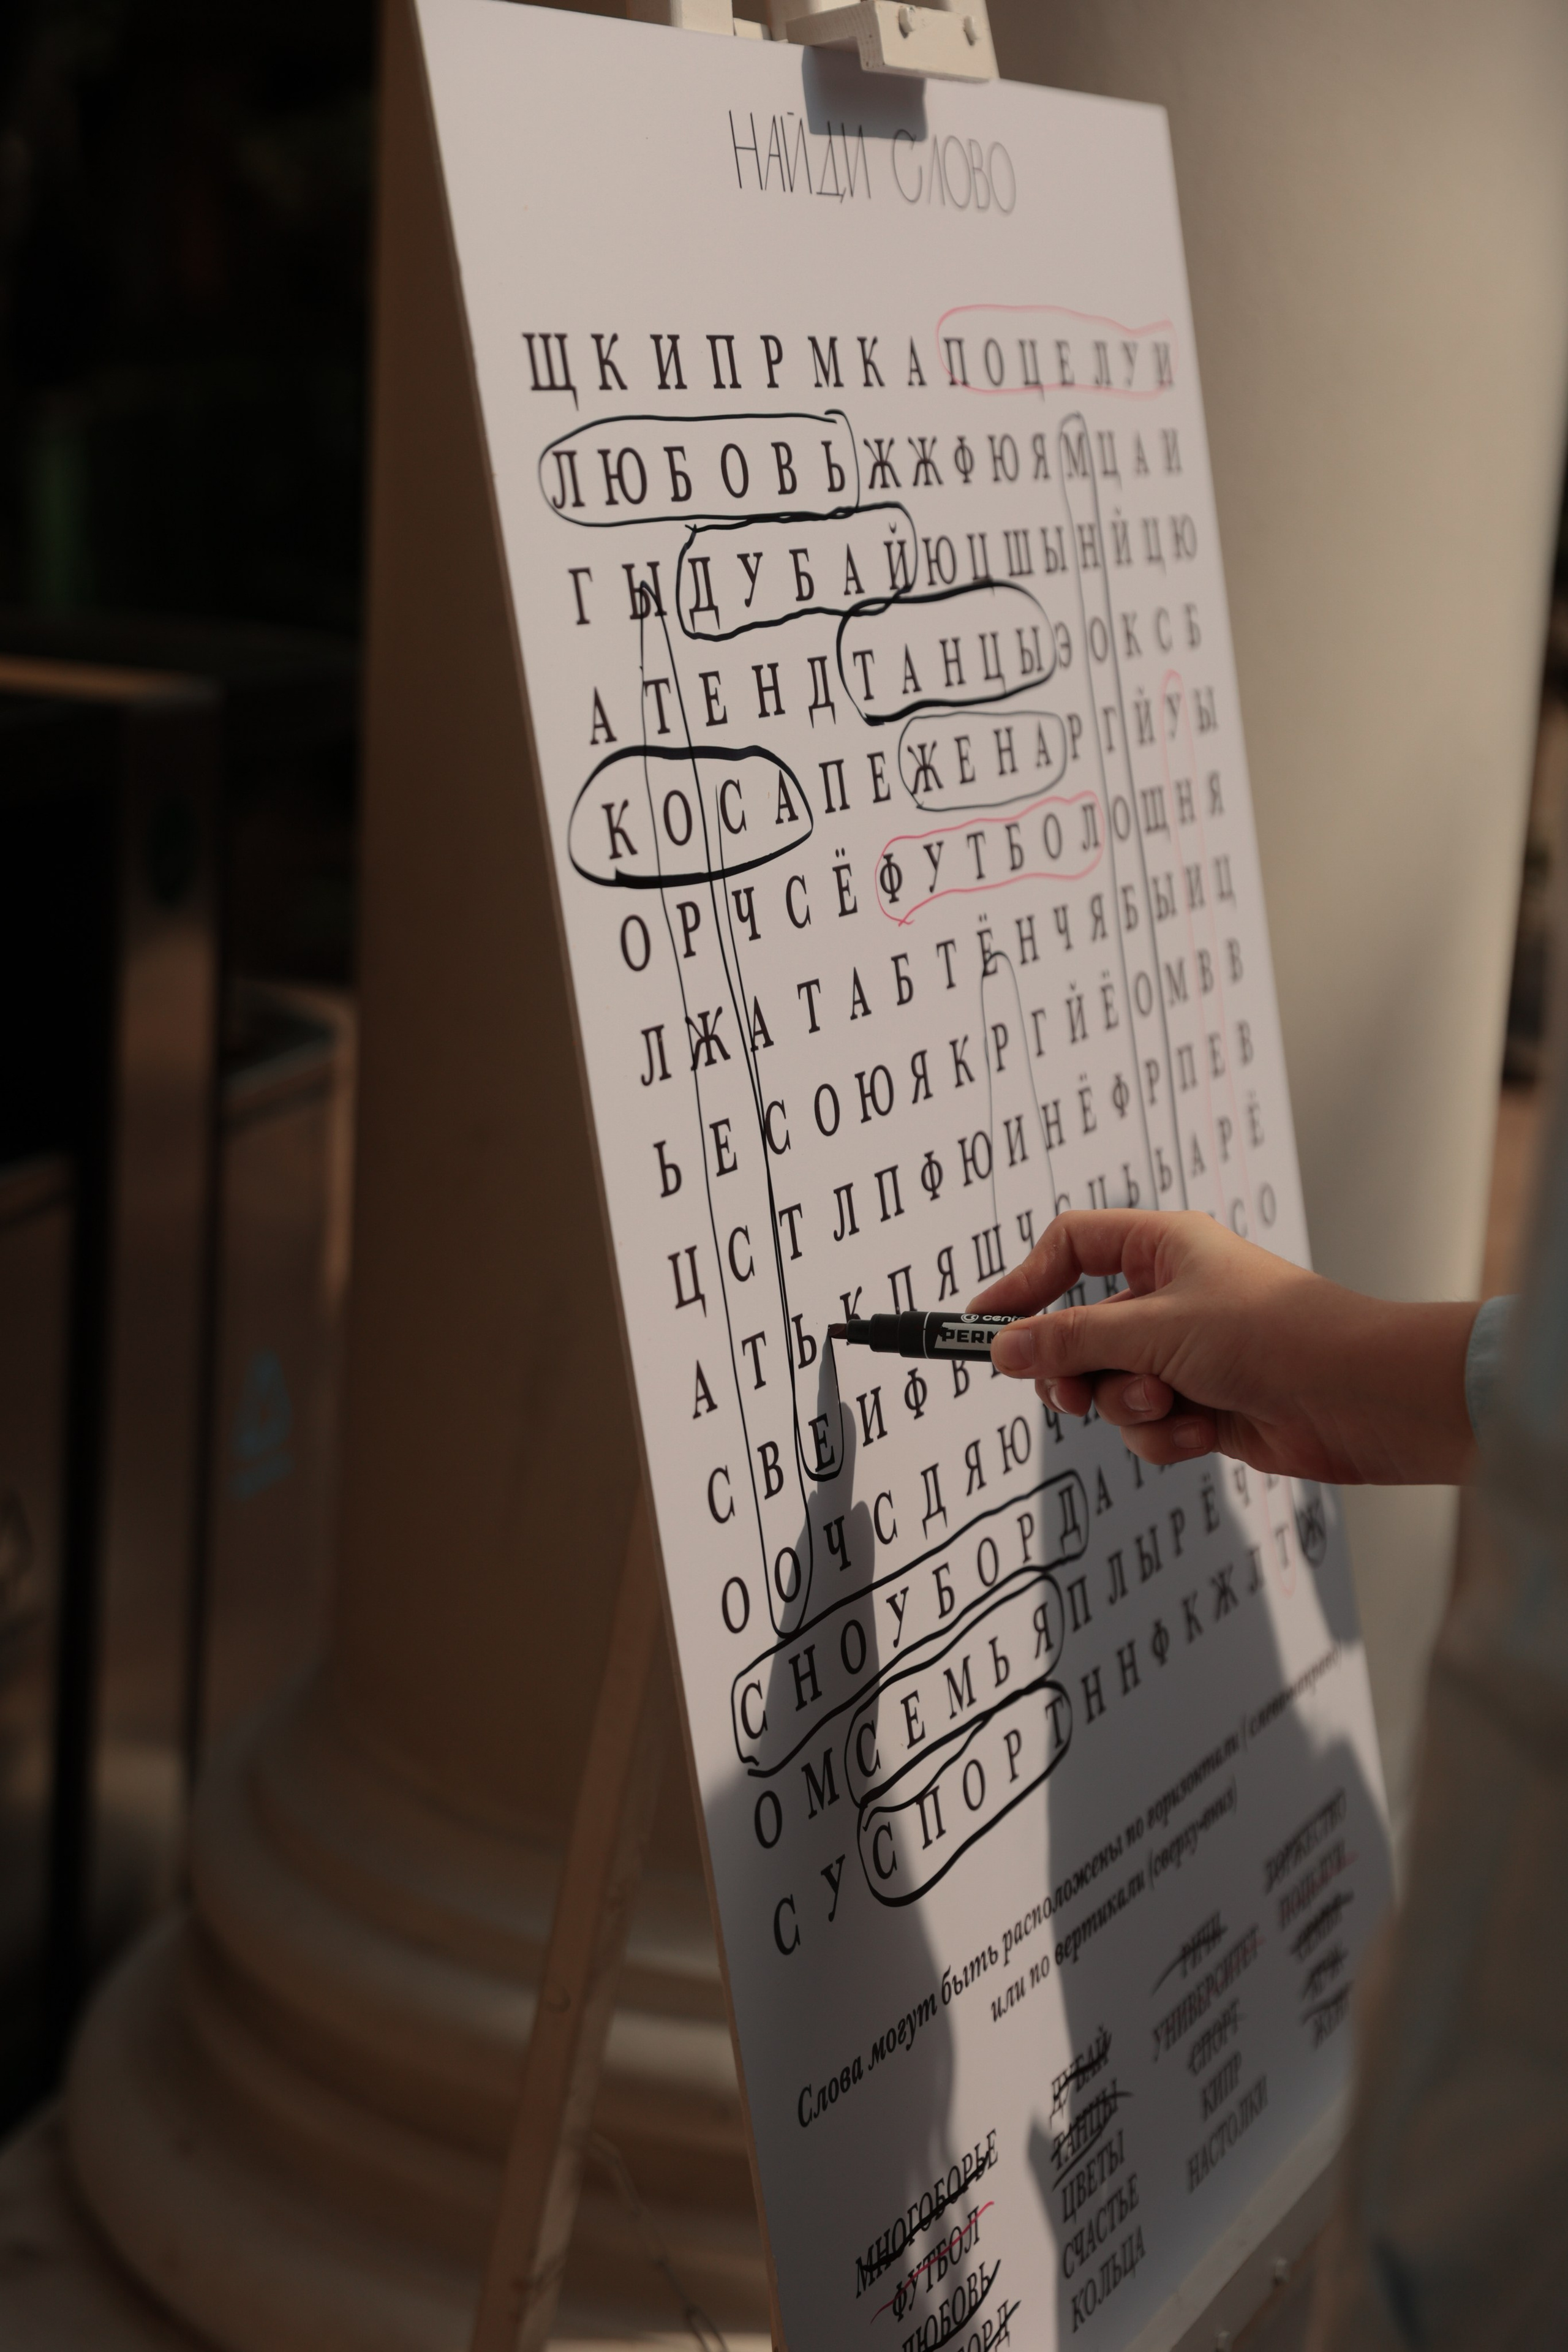 НАЙДИ СЛОВО
Щ К И П Р М К А П О Ц Е Л У И
Л Ю Б О В Ь Ж Ж Ф Ю Я М Ц А И
Г Ы Д У Б А Й Ю Ц Ш Ы Н Й Ц Ю
А Т Е Н Д Т А Н Ц Ы Э О К С Б
К О С А П Е Ж Е Н А Р Г Й У Ы
О Р Ч С Ё Ф У Т Б О Л О Щ Н Я
Л Ж А Т А Б Т Ё Н Ч Я Б Ы И Ц
Ь Е С О Ю Я К Р Г Й Ё О М В В
Ц С Т Л П Ф Ю И Н Ё Ф Р П Е В
А Т Ь К П Я Ш Ч С Ц Ь Ь А Р Ё
С В Е И Ф В С О
О О Ч С Д Я Ю Ч
С Н О У Б О Р Д А Т
О М С Е М Ь Я П Л Ы Р Ё Ч
С У С П О Р Т Н Н Ф К Ж Л Т Ж
Слова могут быть расположены по горизонтали
или по вертикали (сверху-вниз)
МНОГОБОРЬЕ
ФУТБОЛ
ЛЮБОВЬ
ДУБАЙ
ТАНЦЫ
ЦВЕТЫ
СЧАСТЬЕ
КОЛЬЦА
РИЧИ
УНИВЕРСИТЕТ
СПОРТ
КИПР
НАСТОЛКИ
ТОРЖЕСТВО
ПОЦЕЛУИ
PERM